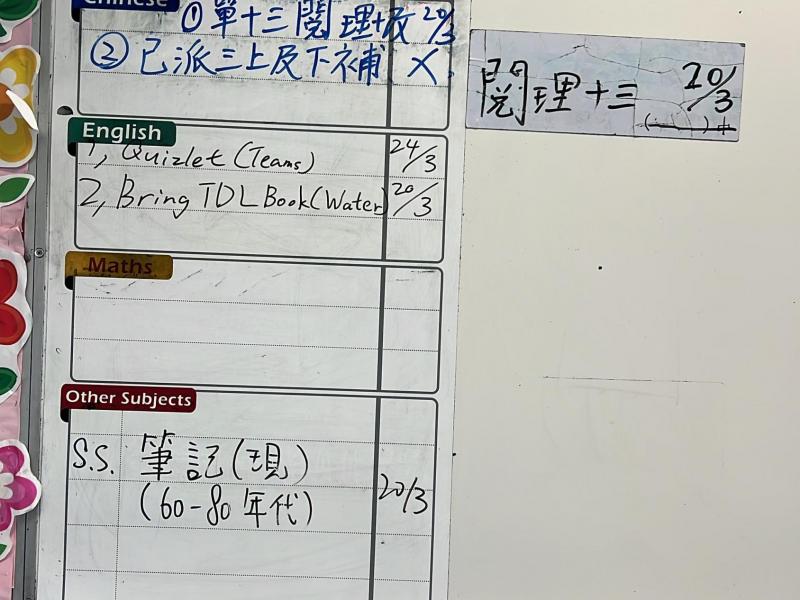 Chinese
①單十三閱理+改 20/3
②已派三上及下補 X
English
1, Quizlet (Teams) 24/3
2, Bring TDL Book (Water) 20/3
Maths
Other Subjects
S.S. 筆記(現)
(60-80年代) 20/3
閱理十三 20/3